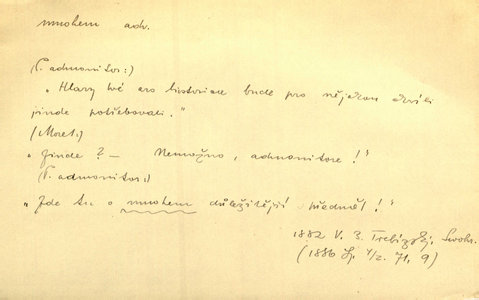 mnohem adv.
(P. admonitor:)
„Hlavy Vé ars historiae bude pro nějakou chvíli
jinde potřebovati."
(Moret:)
„Jinde? — Nemožno, admonitore!"
(P. admonitor:)
„Jde tu o mnohem důležitější předmět!"
1882 V. B. Třebízský,
(1886 Sp. 1/2. 71, 9)